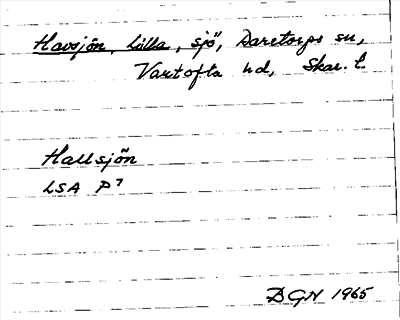 Havsjön, Lilla, sjö, Daretorps sn,
Vartofta hd, Skar. l.
Hallsjön
LSA P7
BGN 1965